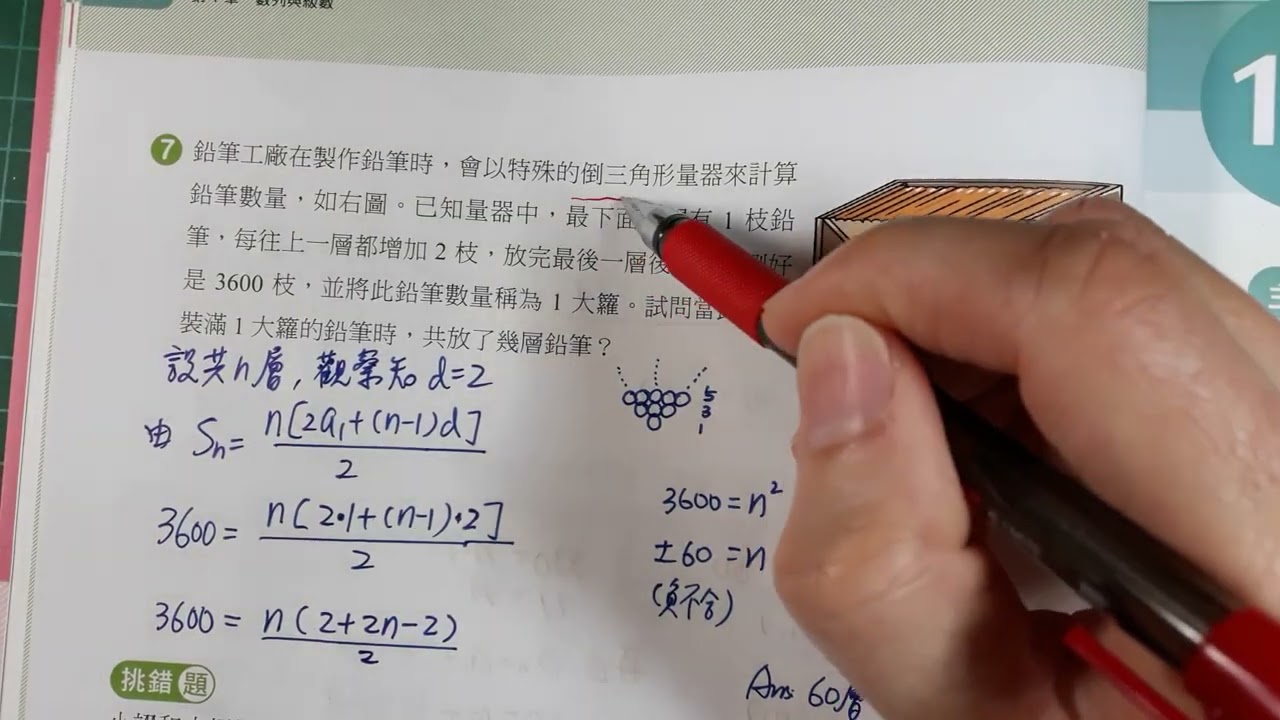 數列與級數
1
7 鉛筆工廠在製作鉛筆時,會以特殊的倒三角形量器來計算
鉛筆數量,如右圖。已知量器中,最下面 有 1 枝鉛
筆,每往上一層都增加 2 枝,放完最後一層後 剛好
是 3600 枝,並將此鉛筆數量稱為 1 大籮。試問當
裝滿 1 大籮的鉛筆時,共放了幾層鉛筆?
設共n層,觀察知 d=2
由 Sn= n[2a₁+(n-1)d] / 2
3600= n[2·1+(n-1)·2] / 2
3600= n(2+2n-2) / 2
5
3
1
3600=n²
±60=n
(負不合)
Ans: 60層
挑錯題